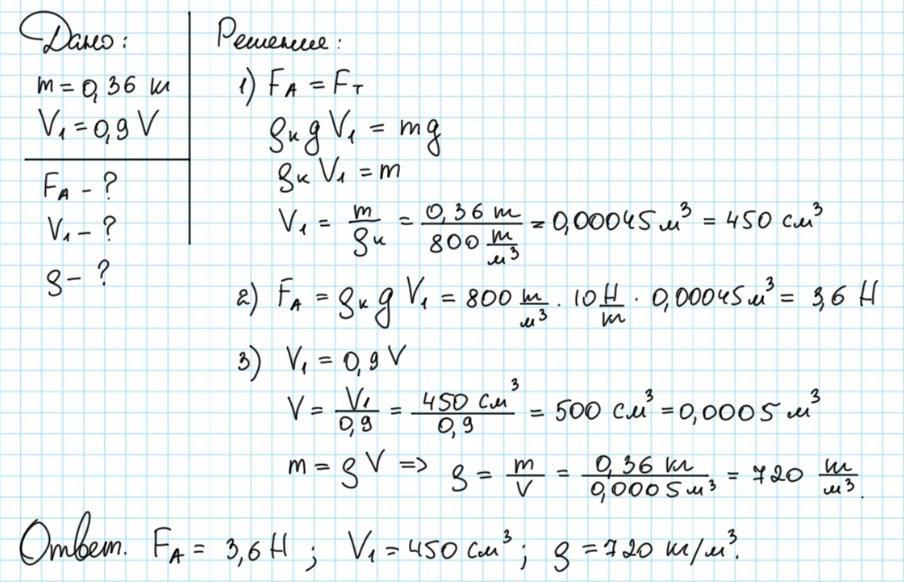 Дано:
m = 0,36 кг
V₁ = 0,9 V
F_A - ?
V₁ - ?
ρ - ?
Решение:
1) F_A = F_т
ρ_к g V₁ = mg
ρ_к V₁ = m
V₁ = m/ρ_к = 0,36 кг / 800 кг/м³ = 0,00045 м³ = 450 см³
2) F_A = ρ_к g V₁ = 800 кг/м³ · 10 Н/кг · 0,00045 м³ = 3,6 Н
3) V₁ = 0,9 V
V = V₁/0,9 = 450 см³/0,9 = 500 см³ = 0,0005 м³
m = ρV => ρ = m/V = 0,36 кг/0,0005 м³ = 720 кг/м³.
Ответ. F_A = 3,6 Н ; V₁ = 450 см³ ; ρ = 720 кг/м³.